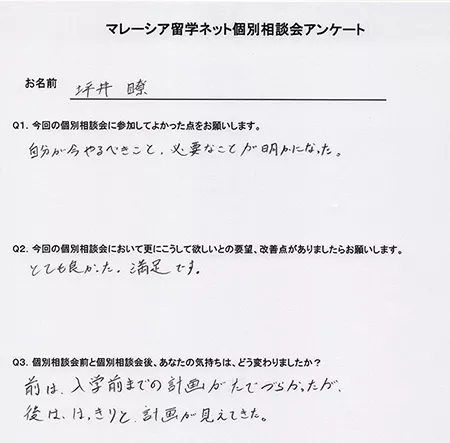 マレーシア留学ネット個別相談会アンケート
お名前 坪井 瞭
Q1. 今回の個別相談会に参加してよかった点をお願いします。
自分が今やるべきこと、必要なことが明かになった。
Q2. 今回の個別相談会において更にこうして欲しいとの要望、改善点がありましたらお願いします。
とても良かった。満足です。
Q3. 個別相談会前と個別相談会後、あなたの気持ちは、どう変わりましたか？
前は、入学前までの計画がたてづらかったが、
後は、はっきりと、計画が見えてきた。